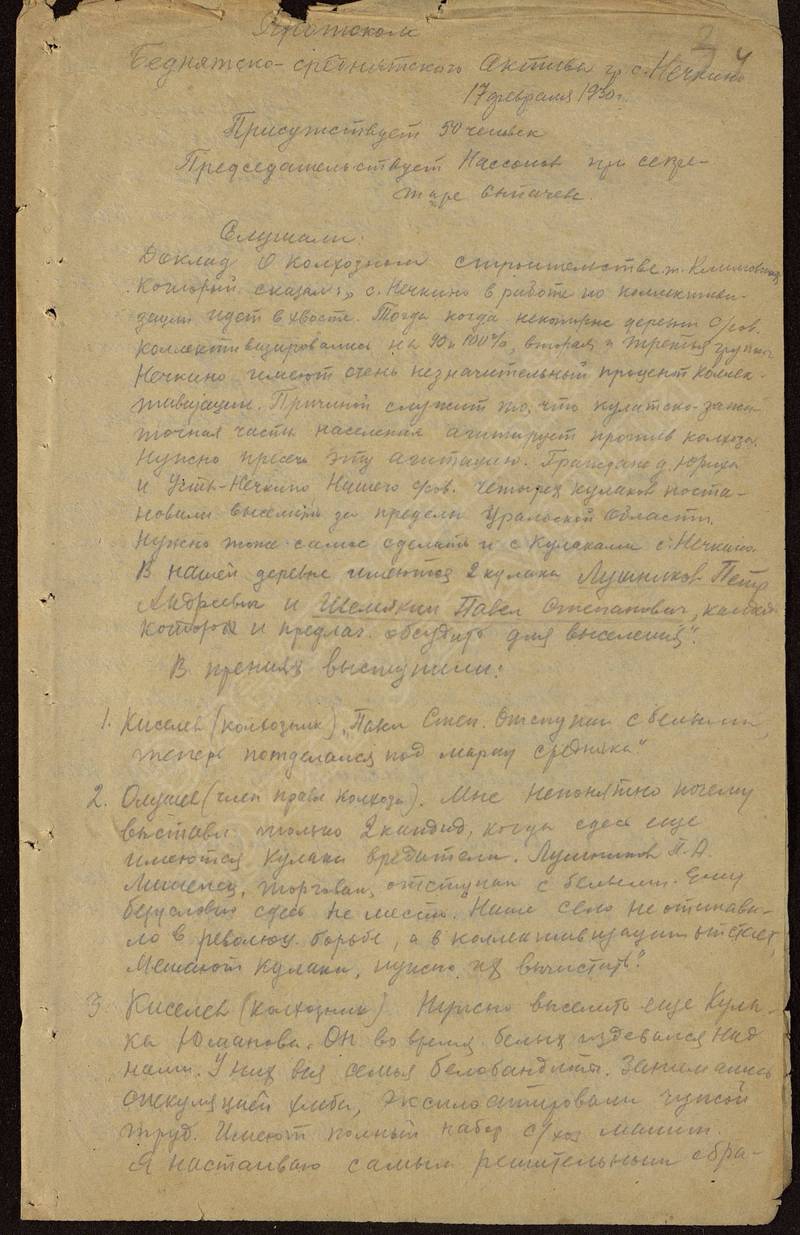 Протокол
Бедняцко-средняцкого Актива гр с. Нечкино
17 февраля 1930 г.
Присутствует 50 человек
Председательствует Нассонов при секре-
таре
Слушали:
Доклад о колхозном строительстве т.
который сказал: „с. Нечкино в работе по коллективи-
зации идет в хвосте. Тогда когда некоторые деревни с/сов.
коллективизировались на 90 и 100%, вторая и третья группы
Нечкино имеют очень незначительный процент коллек-
тивизации. Причиной служит то, что кулатско-зажи-
точная часть населения агитирует против колхоза.
Нужно пресечь эту агитацию. Граждане д. Юриха
и Усть-Нечкино нашего с/сов. четырех кулаков поста-
новили выселить за пределы Уральской области.
Нужно тоже самое сделать и с кулаками с. Нечкино.
В нашей деревне имеются 2 кулака Лушников Петр
Андреевич и Шемякин Павел Степанович,
которых и предлаг. обсудить для выселения".
В прениях выступили:
1. Киселев (колхозник) „Павел Степ. Отступал с белыми,
теперь подделался под марку средняка"
2. (член правл колхоза). Мне непонятно почему
выставл. только 2 кандид, когда здесь еще
имеются кулаки вредители. Лушников П. А.
торговал, отступал с белыми. Ему
безусловно здесь не место. Наше село не отстава-
ло в революц. борьбе, а в коллективизации отстает,
Мешают кулаки, нужно их вычистить".
3 Киселев (колхозник) Нужно выселить еще Кула-
ка Юманова. Он во время белых издевался над
нами. У них вся семья белобандиты. Занимались
спекуляцией хлеба, эксплоатировали чужой
труд. Имеют полный набор с/хоз машин.
Я настаиваю самым решительным обра-